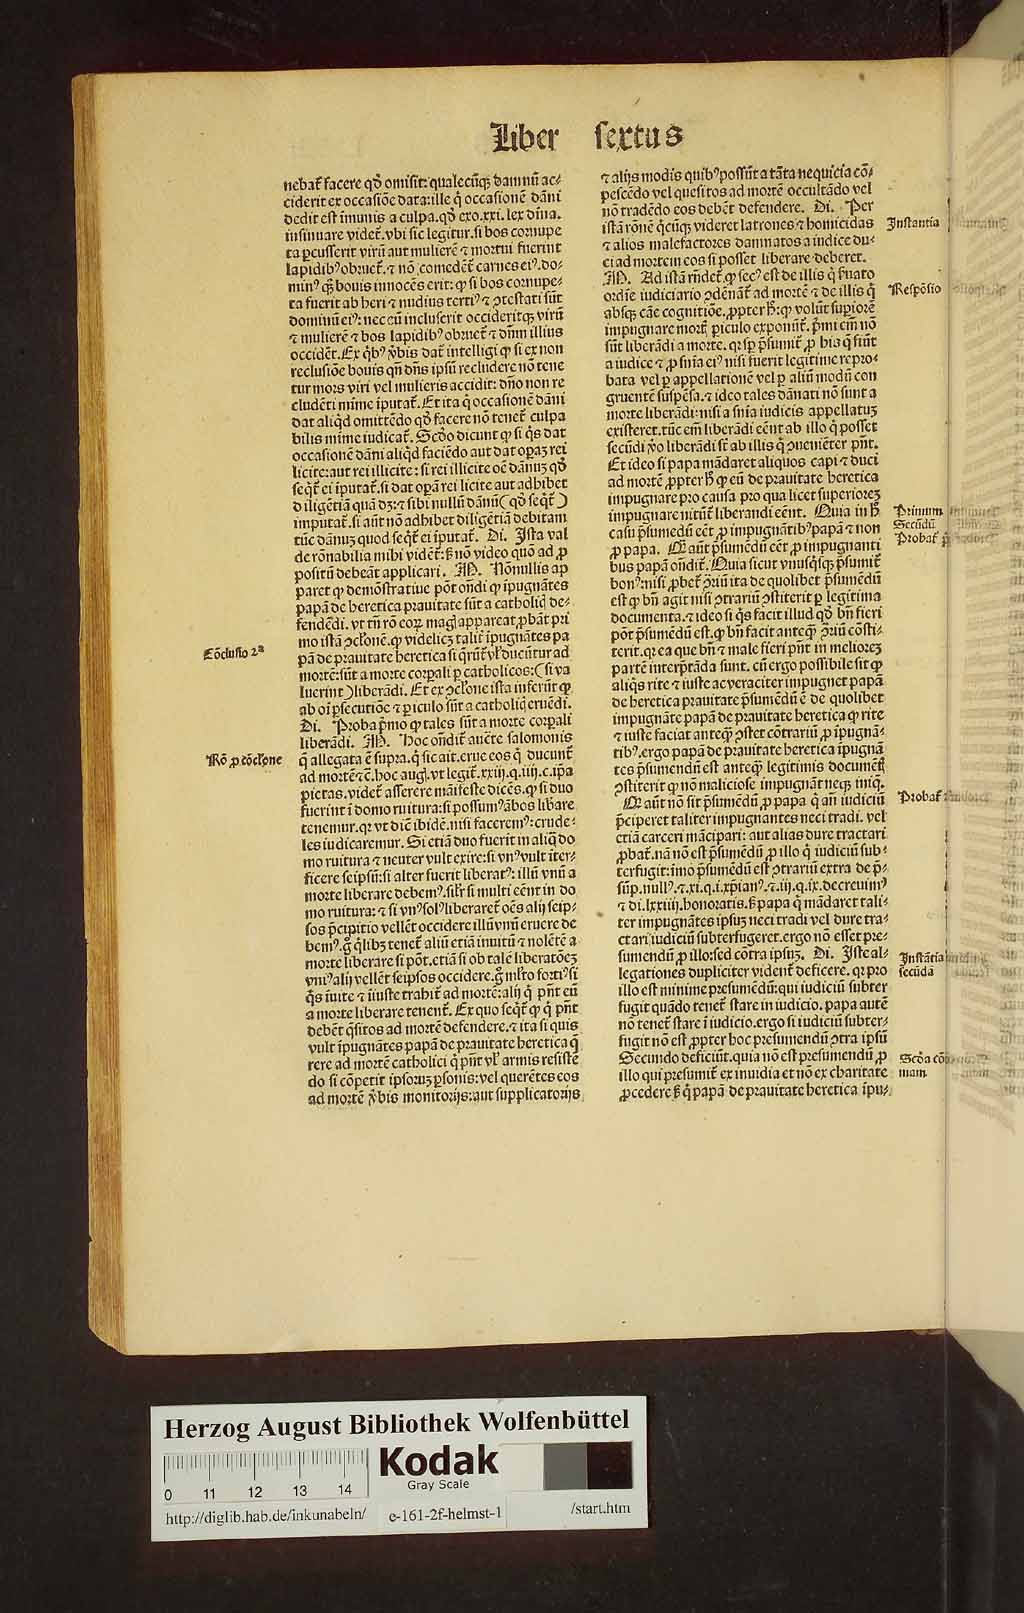 Liber sextus
nebat̃ facere qđ omisit: qualecũqꝫ damnũ ac⸗
ciderit ex occasiõe data: ille q̇ occasionẽ dãni
dedit est ĩmunis a culpa. qđ exo. xxi. lex diña.
insinuare videt̃. vbi sic legitur. si bos cornupe
ta ꝑcusserit virũ aut mulierẽ ⁊ mortui fuerint
lapidibꝰ obruet̃. ⁊ nõ comedẽt̃ carnes eiꝰ. do⸗
minꝰ qꝫ bouis innocẽs erit: ꝙ si bos cornupe⸗
ta fuerit ab heri ⁊ nudius tertiꝰ ⁊ ꝯtestati sũt
dominũ eiꝰ: nec eũ incluserit occideritqꝫ virũ
⁊ mulierẽ ⁊ bos lapidibꝰ obruet̃ ⁊ dñm illius
occidẽt. Ex q̇bꝰ v̉bis dat̃ intelligi ꝙ si ex non
reclusiõe bouis qñ dñs ipsũ recludere nõ tene
tur mors viri vel mulieris accidit: dño non re
cludẽti mĩme ĩputat̃. Et ita q̇ occasionẽ dãni
dat aliq̇d omittẽdo qđ facere nõ tenet̃ culpa
bilis mĩme iudicat̃. Scđo dicunt ꝙ si q̇s dat
occasionẽ dãni aliq̇d faciẽdo aut dat oꝑaꝫ rei
licite: aut rei illicite: si rei illicite oẽ dãnuꝫ qđ
seq̇t̃ ei ĩputat̃. si dat oꝑã rei licite aut adhibet
diligẽtiã quã dꝫ: ⁊ sibi nullũ dãnũ (qđ seq̇t̃)
imputat̃. si aũt nõ adhibet diligẽtiã debitam
tũc dãnuꝫ quod seq̇t̃ ei ĩputat̃. Di. Ista val
de rõnabilia mihi vidẽt̃: sꝫ nõ video quõ ad ꝓ
positũ debeãt applicari. M. Nõnullis ap
paret ꝙ demõstratiue põt oñdi ꝙ ĩpugnãtes
papã de heretica prauitate sũt a catholicꝭ de⸗
fendẽdi. vt tñ rõ eoꝝ magꝭ appareat ꝓbãt pri
mo istã ꝯclonẽ. ꝙ videlicꝫ talit̃ ĩpugnãtes pa
pã de prauitate heretica si q̇rũt̃ vl̃ ducũtur ad
mortẽ: sũt a morte corꝑali ꝑ catholicos: (si va
luerint) liberãdi. Et ex ꝯclone ista inferũt ꝙ
ab oĩ ꝑsecutiõe ⁊ ꝑiculo sũt a catholicꝭ eruẽdi.
Di. Proba p̃mo ꝙ tales sũt a morte corꝑali
liberãdi. M. Hoc oñdit̃ aucte salomonis
q̃ allegata ẽ supra. q̇ sic ait. erue eos q̇ ducunt̃
ad mortẽ ⁊ẽ. hoc augꝰ. vt legit̃. xxiij. q. iij. c. ip̃a
pietas. videt̃ asserere mãifeste dicẽs. ꝙ si duo
fuerint ĩ domo ruitura: si possumꝰ ãbos lib̾are
tenemur. qꝛ vt dic̃ ibidẽ. nisi faceremꝰ: crude⸗
les iudicaremur. Si etiã duo fuerit in aliq̃ do
mo ruitura ⁊ neuter vult exire: si vnꝰ vult iter⸗
ficere seipsũ: si alter fuerit liberatꝰ: illũ vnũ a
morte liberare debemꝰ. sil̃r si multi eẽnt in do
mo ruitura: ⁊ si vnꝰ solꝰ liberaret̃ oẽs alij seip⸗
sos p̃cipitio vellẽt occidere illũ vnũ eruere de
bemꝰ. g̃ q̇libꝫ tenet̃ aliũ etiã inuitũ ⁊ nolẽtẽ a
morte liberare si põt. etiã si ob talẽ liberatõeꝫ
vniꝰ alij vellẽt seipsos occidere. g̃ ml̃to fortiꝰ si
q̇s ĩuite ⁊ ĩiuste trahit̃ ad mortẽ: alij q̇ pñt eũ
a morte liberare tenent̃. Ex quo seq̇t̃ ꝙ q̇ pñt
debẽt q̃sitos ad mortẽ defendere. ⁊ ita si quis
vult ĩpugnãtes papã de prauitate heretica q̃
rere ad mortẽ catholici q̇ pñt vl̃ armis resiste
do si cõpetit ipsoruꝫ ꝑsonis: vel querẽtes eos
ad mortẽ v̉bis monitorijs: aut supplicatorijs
Cõclusio 2ª
Rõ ꝓ cõclone
⁊ alijs modis quibꝰ possũt a tãta nequicia cõ⸗
pescẽdo vel quesitos ad mortẽ occultãdo vel
nõ tradẽdo eos debẽt defendere. Di. Per
istã rõnẽ q̇cũqꝫ videret latrones ⁊ homicidas
⁊ alios malefactores damnatos a iudice du⸗
ci ad mortem eos si posset liberare deberet.
M. Ad istã rñdet̃ ꝙ secꝰ est de illis q̇ s̾uato
ordĩe iudiciario ꝯdẽnãt̃ ad mortẽ ⁊ de illis q̇
absqꝫ cãe cognitiõe. ꝓpter hꝫ: ꝙ volũt suꝑiorẽ
impugnare mortꝭ ꝑiculo exponũt̃. p̃mi em̃ nõ
sũt liberãdi a morte. qꝛ sꝑ p̃sumit̃ ꝓ his q̃ fiũt
a iudice ⁊ ꝓ sñia eiꝰ nisi fuerit legitime repro⸗
bata vel ꝑ appellationẽ vel ꝑ aliũ modũ con
gruentẽ suspẽsa. ⁊ ideo tales dãnati nõ sunt a
morte liberãdi: nisi a sñia iudicis appellatuꝫ
existeret. tũc em̃ liberãdi eẽnt ab illo q̇ posset
secũdi v̾o liberãdi sũt ab illis q̇ ꝯueniẽter pñt.
Et ideo si papa mãdaret aliquos capi ⁊ duci
ad mortẽ ꝓpter hꝫ ꝙ eũ de prauitate heretica
impugnare pro causa pro qua licet superioreꝫ
impugnare nitũt̃ liberandi eẽnt. Quia in hꝫ
casu p̃sumedũ eẽt ꝓ impugnãtibꝰ papã ⁊ non
ꝓ papa. Qꝙ aũt p̃sumẽdũ eẽt ꝓ impugnanti
bus papã oñdit̃. Quia sicut vnusq̇sqꝫ p̃sumit̃
bonꝰ: nisi ꝓbet̃ ꝯriũ ita de quolibet p̃sumẽdũ
est ꝙ bñ agit nisi ꝯtrariũ ꝯstiterit ꝑ legitima
documenta. ⁊ ideo si q̇s facit illud qđ bñ fieri
põt p̃sumẽdũ est. ꝙ bñ facit anteqꝫ ꝯriũ cõsti⸗
terit. qꝛ ea que bñ ⁊ male fieri pñt in melioreꝫ
partẽ interp̃tãda sunt. cũ ergo possibile sit ꝙ
aliq̇s rite ⁊ iuste ac veraciter impugnet papã
de heretica prauitate p̃sumẽdũ ẽ de quolibet
impugnãte papã de prauitate heretica ꝙ rite
⁊ iuste faciat anteqꝫ ꝯstet cõtrariũ ꝓ ĩpugnã⸗
tibꝰ. ergo papã de prauitate heretica ĩpugnã
tes p̃sumẽdũ est anteqꝫ legitimis documẽtꝭ
ꝯstiterit ꝙ nõ maliciose impugnãt neqꝫ iniq̃.
Qꝙ aũt nõ sit p̃sumẽdũ ꝓ papa q̇ añ iudiciũ
p̃ciperet taliter impugnantes neci tradi. vel
etiã carceri mãcipari: aut alias dure tractari
ꝓbat̃. nã nõ est p̃sumẽdũ ꝓ illo q̇ iudiciũ sub⸗
terfugit: imo p̃sumẽdũ est ꝯtrariũ extra de p̃⸗
sũp. nullꝰ. ⁊. xi. q. i. xp̃ianꝰ. ⁊. iij. q. ix. decreuimꝰ
⁊ di. lxxiiij. honoratis. sꝫ papa q̇ mãdaret tali⸗
ter impugnãtes ipsuꝫ neci tradi vel dure tra⸗
ctari iudiciũ subterfugeret. ergo nõ esset pre⸗
sumendũ ꝓ illo: sed cõtra ipsuꝫ. Di. Iste al⸗
legationes dupliciter vident̃ deficere. qꝛ pro
illo est minime presumẽdũ: qui iudiciũ subter
fugit quãdo tenet̃ stare in iudicio. papa autẽ
nõ tenet̃ stare ĩ iudicio. ergo si iudiciũ subter⸗
fugit nõ est ꝓpter hoc presumendũ ꝯtra ipsũ
Secundo deficiũt. quia nõ est presumendũ ꝓ
illo qui presumit̃ ex inuidia et nõ ex charitate
ꝓcedere sꝫ q̇ papã de prauitate heretica ĩpu⸗
Instantia
Respõsio
Primum
Secũdũ
Probat̃
Probat̃
Instãtia
secũda
Scđa
mam
Herzog August Bibliothek Wolfenbüttel
Kodak
Gray Scale
0 11 12 13 14
http://diglib.hab.de/inkunabeln/ e-161-2f-helmst-1 /start.htm